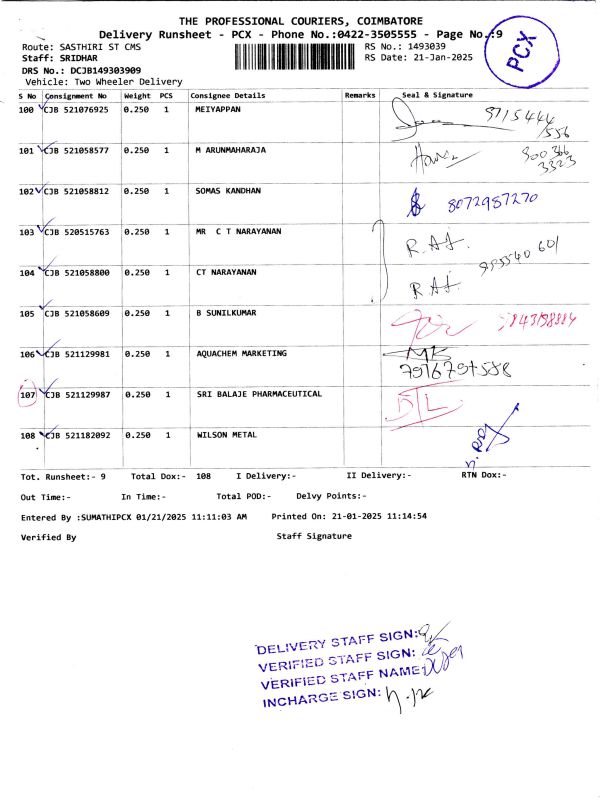 THE PROFESSIONAL COURIERS, COIMBATORE
Delivery Runsheet - PCX - Phone No.:0422-3505555 - Page No.:9
PCX
Route: SASTHIRI ST CMS
RS No.: 1493039
Staff: SRIDHAR
RS Date: 21-Jan-2025
DRS No.: DCJB149303909
Vehicle: Two Wheeler Delivery
S No Consignment No Weight PCS Consignee Details Remarks Seal & Signature
100 CJB 521076925 0.250 1 MEIYAPPAN 9715444
/556
101 CJB 521058577 0.250 1 M ARUNMAHARAJA 900366
3323
102 CJB 521058812 0.250 1 SOMAS KANDHAN 8072987270
103 CJB 520515763 0.250 1 MR C T NARAYANAN
104 CJB 521058800 0.250 1 CT NARAYANAN
105 CJB 521058609 0.250 1 B SUNILKUMAR
106 CJB 521129981 0.250 1 AQUACHEM MARKETING MK
107 CJB 521129987 0.250 1 SRI BALAJE PHARMACEUTICAL
108 CJB 521182092 0.250 1 WILSON METAL
Tot. Runsheet:- 9 Total Dox:- 108 I Delivery:- II Delivery:- RTN Dox:-
Out Time:- In Time:- Total POD:- Delvy Points:-
Entered By :SUMATHIPCX 01/21/2025 11:11:03 AM Printed On: 21-01-2025 11:14:54
Verified By Staff Signature
DELIVERY STAFF SIGN:
VERIFIED STAFF SIGN:
VERIFIED STAFF NAME:
INCHARGE SIGN: